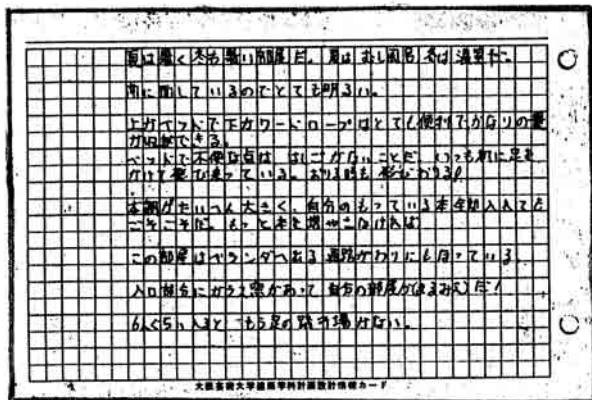 夏は暑く冬も暑い部屋だ。夏はむし風呂冬は温室だ。
南に面しているのでとても明るい。
上がベットで下がワードローブはとても便利でかなりの量
が収納できる。
ベットで不便な点は、はしごがないことだ。いつも机に足を
かけて飛び乗っている。おりる時も飛びおりる!
本棚がたいへん大きく、自分のもっている本全部入れても
こそこそだ。もっと本を増やさなければ
この部屋はベランダへ出る通路がわりにもなっている。
入口部分にガラス窓があって自分の部屋がまるみえだ!
6人ぐらい入るともう足の踏み場がない。
大阪芸術大学建築学科計画設計情報カード